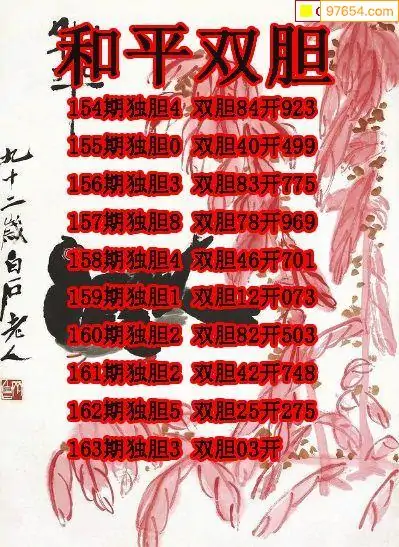 97654.com
和平双胆
154期独胆4 双胆84开923
155期独胆0 双胆40开499
156期独胆3 双胆83开775
157期独胆8 双胆78开969
158期独胆4 双胆46开701
159期独胆1 双胆12开073
160期独胆2 双胆82开503
161期独胆2 双胆42开748
162期独胆5 双胆25开275
163期独胆3 双胆03开
九十二岁白石老人